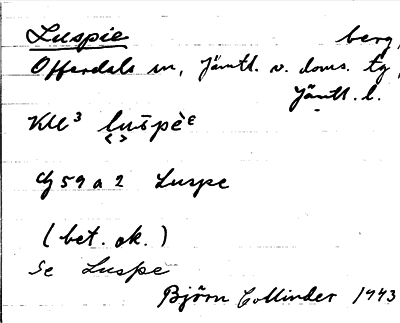 Luspie berg,
Offerdals sn, Jämtl. v. doms. tg,
Jämtl. l.
KU³ lus̄pèᵉ
Cf 59 a 2 Luspe
(bet. ok.)
Se Luspe
Björn Collinder 1943